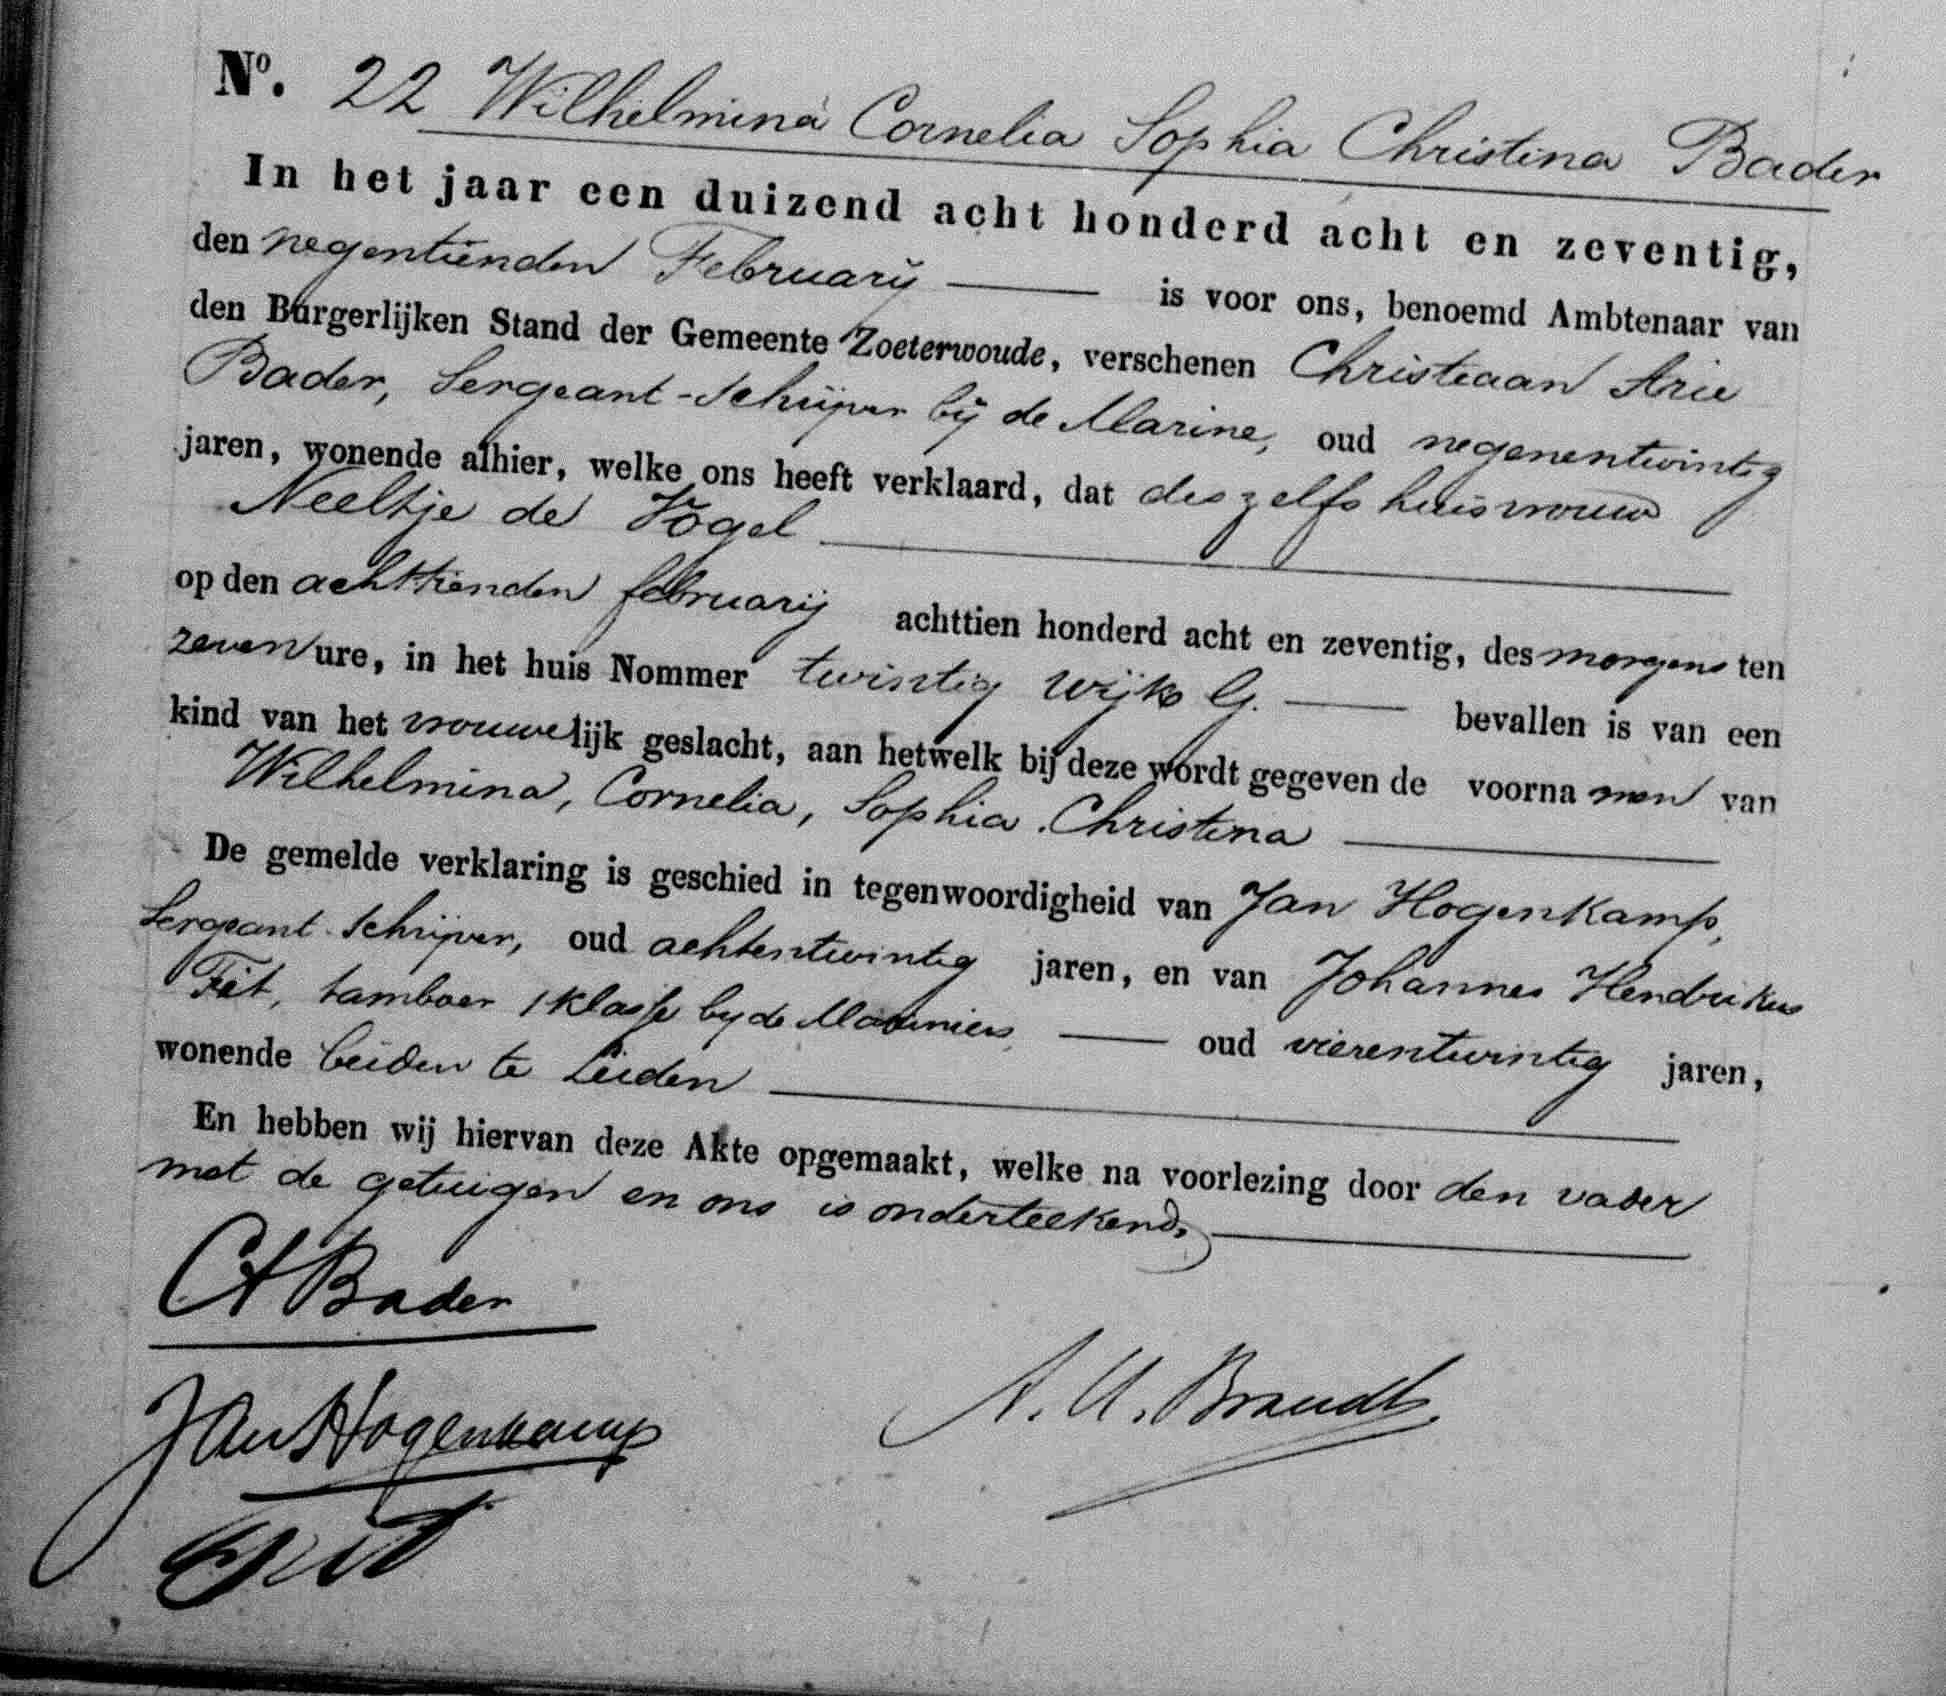 No. 22 Wilhelmina Cornelia Sophia Christina Bader
In het jaar een duizend acht honderd acht en zeventig,
den negentienden Februarij is voor ons, benoemd Ambtenaar van
den Burgerlijken Stand der Gemeente Zoeterwoude, verschenen Christiaan Arie
Bader, Sergeant-Schrijver bij de Marine, oud negenentwintig
jaren, wonende alhier, welke ons heeft verklaard, dat deszelfs huisvrouw
Neeltje de Vogel
op den achttienden februarij achttien honderd acht en zeventig, des morgens ten
zeven ure, in het huis Nommer twintig wijk G. bevallen is van een
kind van het vrouwelijk geslacht, aan hetwelk bij deze wordt gegeven de voornamen van
Wilhelmina, Cornelia, Sophia. Christina
De gemelde verklaring is geschied in tegenwoordigheid van Jan Hogenkamp,
Sergeant-Schrijver, oud achtentwintig jaren, en van Johannes Hendrikus
tamboer 1 klasse by de Mariniers, oud vierentwintig jaren,
wonende beiden te Leiden
En hebben wij hiervan deze Akte opgemaakt, welke na voorlezing door den vader
met de getuigen en ons is onderteekend.
CABader
Jan Hogenkamp
Brandt